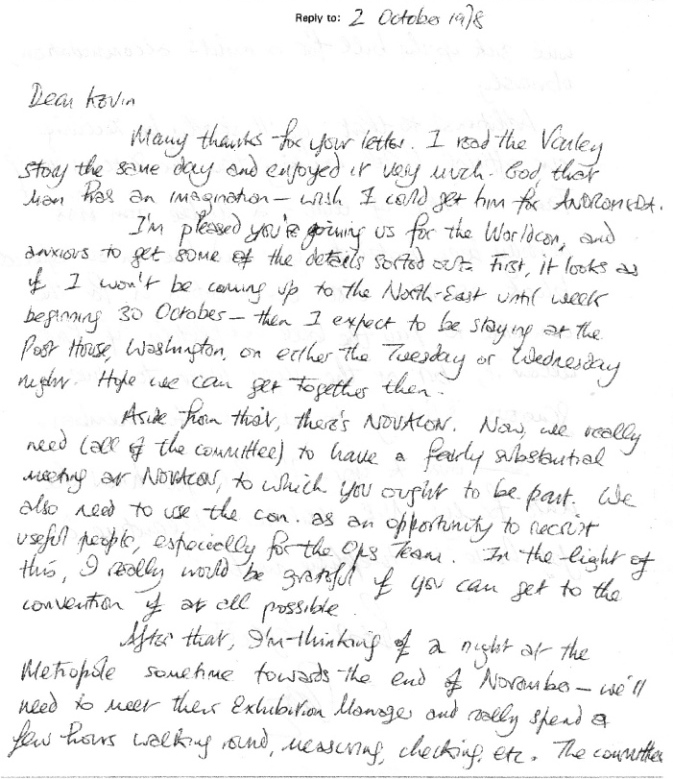 Reply to: 2 October 1978
Dear Kevin
Many thanks for your letter. I read the Varley
story the same day and enjoyed it very much. God, that
man has an imagination — wish I could get him for ANDROMEDA.
I'm pleased you're joining us for the Worldcon, and
anxious to get some of the details sorted out. First, it looks as
if I won't be coming up to the North-East until week
beginning 30 October — then I expect to be staying at the
Post House, Washington, on either the Tuesday or Wednesday
night. Hope we can get together then.
Aside from that, there's NOVACON. Now, we really
need (all of the committee) to have a fairly substantial
meeting at NOVACON, to which you ought to be part. We
also need to use the con. as an opportunity to recruit
useful people, especially for the Ops Team. In the light of
this, I really would be grateful if you can get to the
convention if at all possible.
After that, I'm thinking of a night at the
Metropole sometime towards the end of November — we'll
need to meet their Exhibition Manager and really spend a
few hours walking round, measuring, checking, etc. The committee